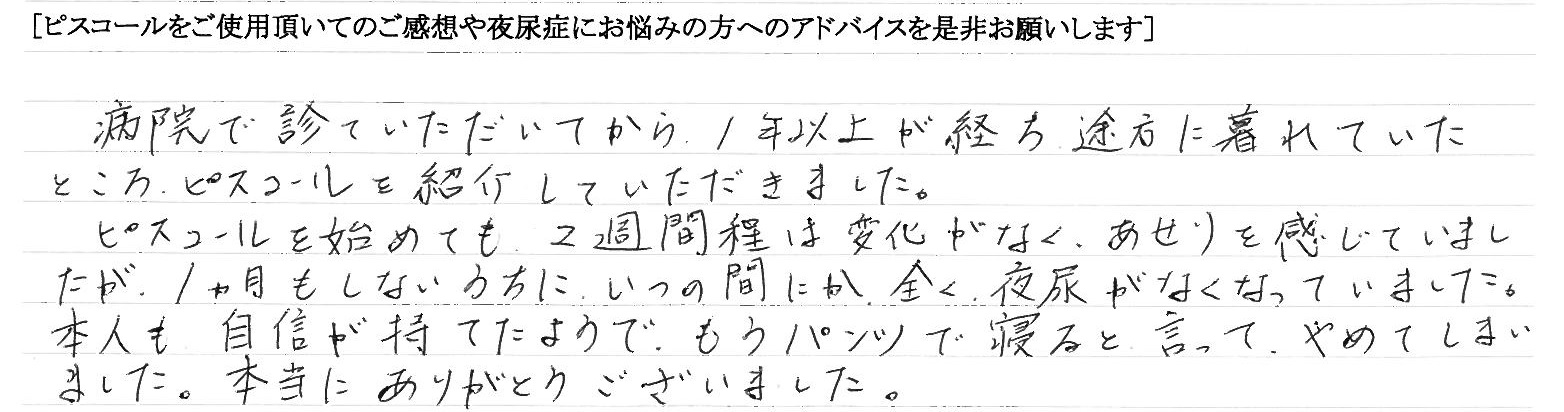 [ピスコールをご使用頂いてのご感想や夜尿症にお悩みの方へのアドバイスを是非お願いします]
病院で診ていただいてから、1年以上が経ち、途方に暮れていた
ところ、ピスコールを紹介していただきました。
ピスコールを始めても、2週間程は変化がなく、あせりを感じていまし
たが、1ヵ月もしないうちに、いつの間にか、全く、夜尿がなくなっていました。
本人も自信が持てたようで、もうパンツで寝ると言って、やめてしまい
ました。本当にありがとうございました。